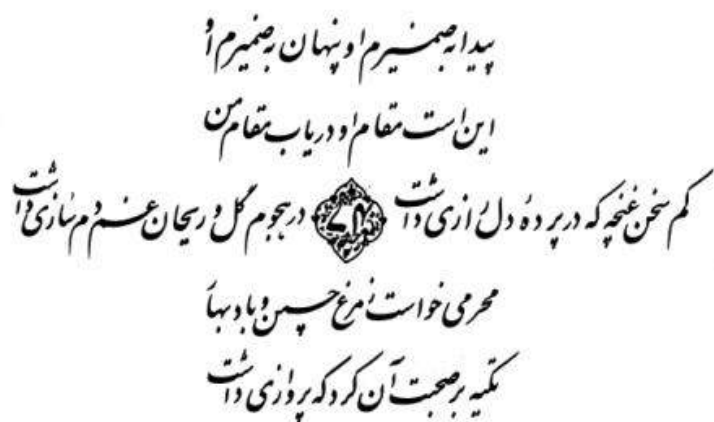 پیدا بضمیرم او پنهان بضمیرم او
این است مقام او دریاب مقام من
کم سخن غنچه که در پردهٔ دل رازی داشت در هجوم گل و ریحان غم دمسازی داشت
محرمی خواست ز مرغ چمن و باد بهار
تکیه بر صحبت آن کرد که پروازی داشت